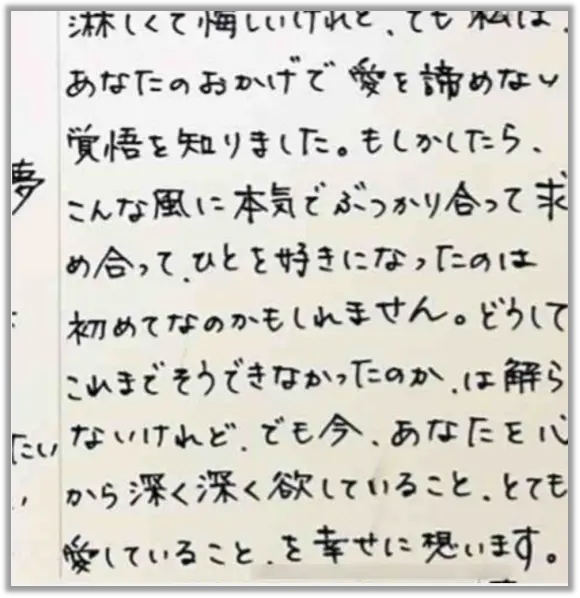 淋しくて悔しいけれど、でも 私は、
あなたのおかげで 愛を諦めない
覚悟を知りました。もしかしたら、
こんな風に本気でぶつかり合って求
め合って、ひとを好きになったのは
初めてなのかもしれません。どうして
これまでそうできなかったのか、は解ら
ないけれど、でも今、あなたを心
から深く深く欲していること、とても
愛していること、を幸せに想います。
夢
たい